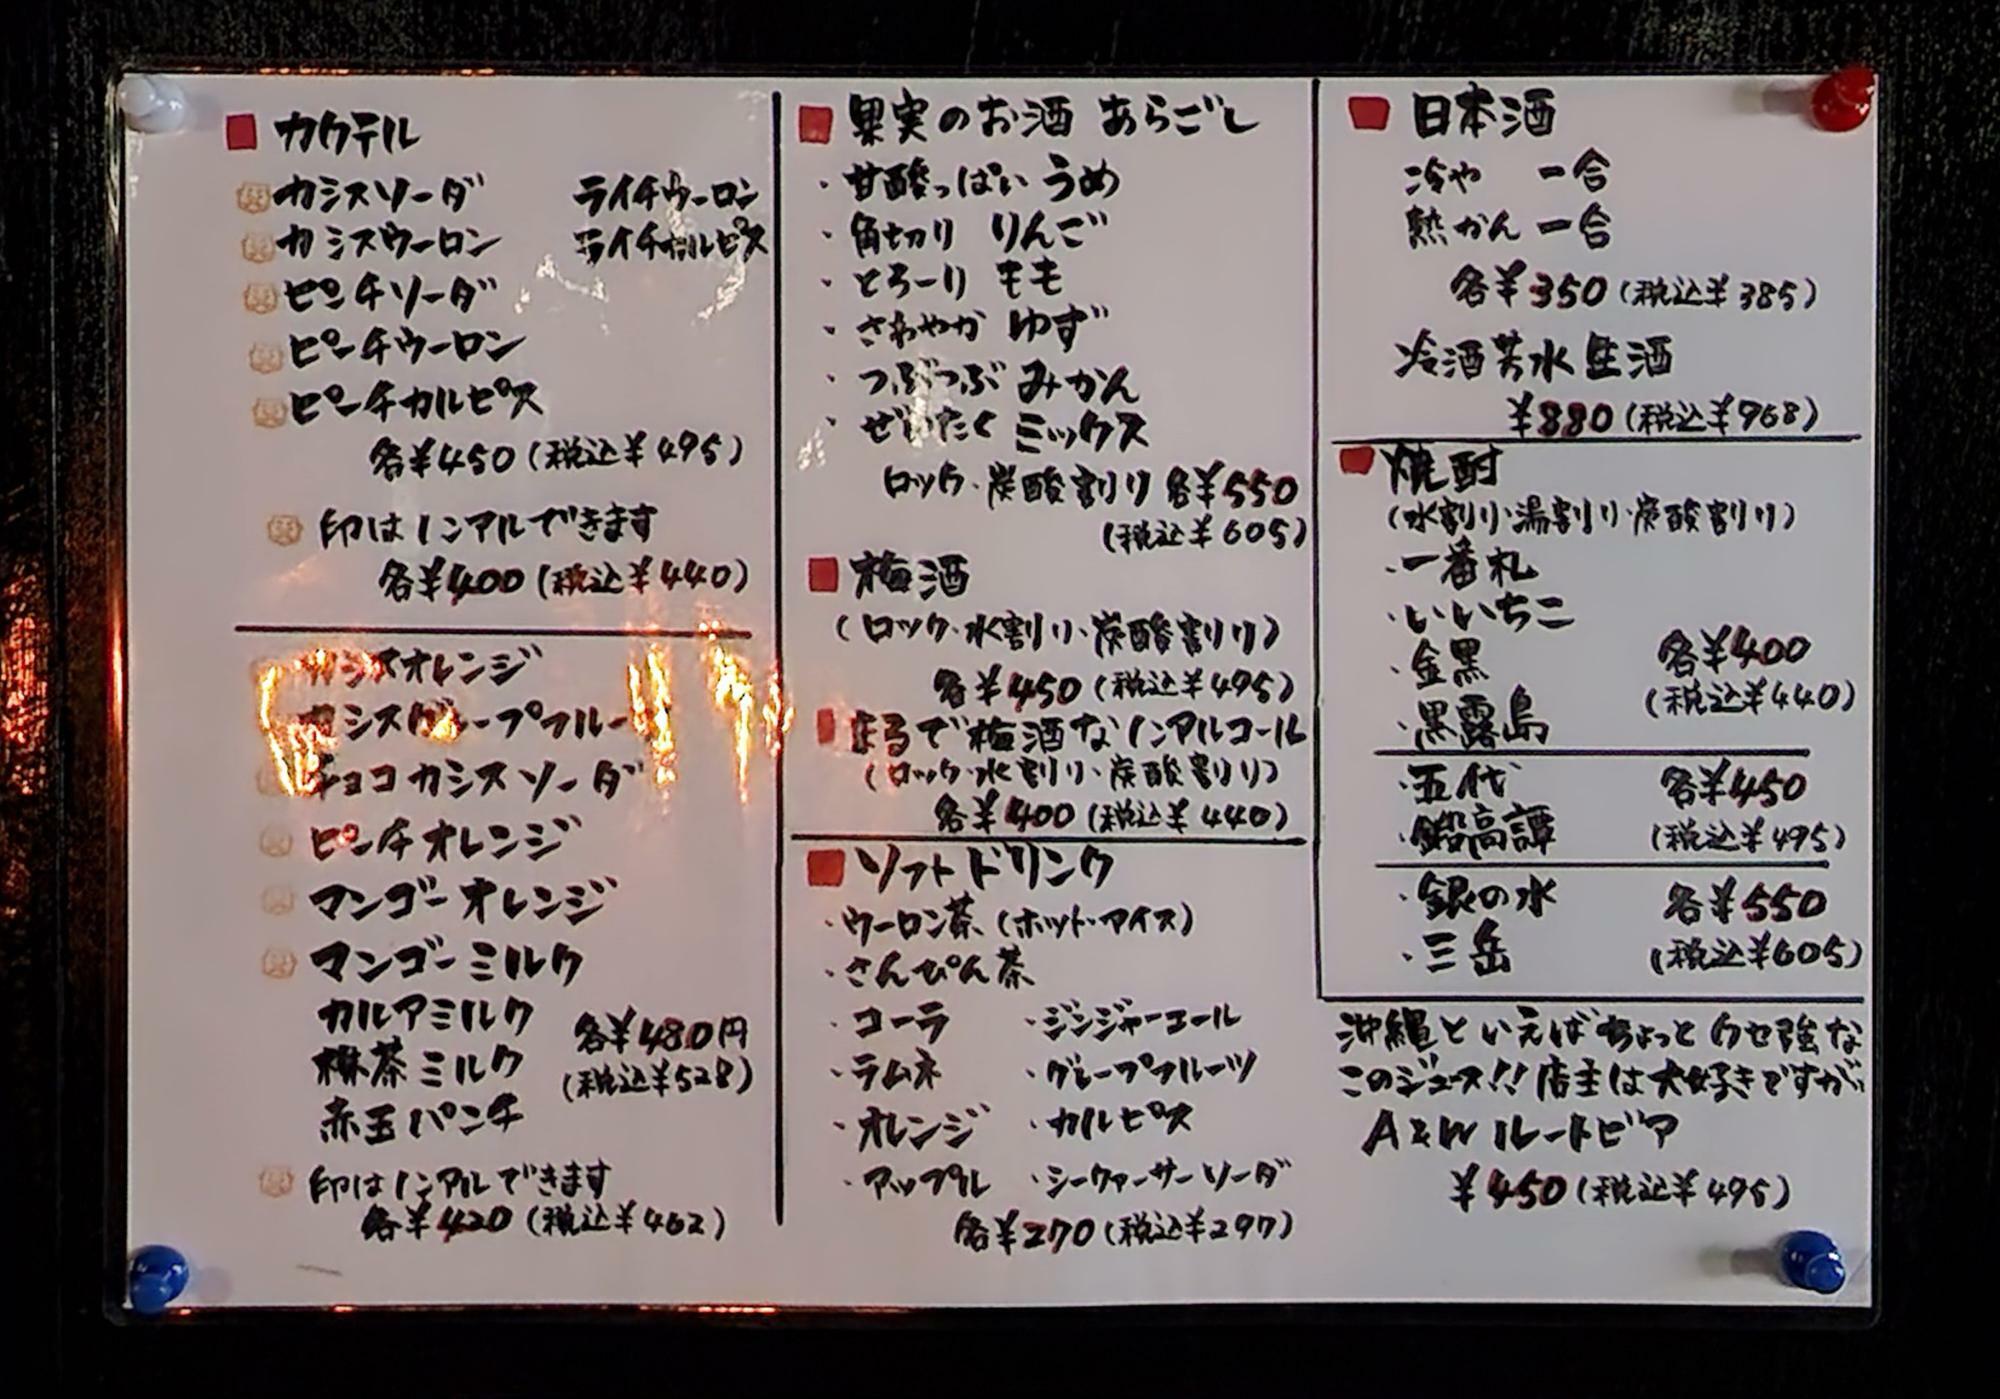 カクテル
カシスソーダ ライチウーロン
カシスウーロン ライチカルピス
ピーチソーダ
ピーチウーロン
ピーチカルピス
各¥450(税込¥495)
印はノンアルできます
各¥400(税込¥440)
カシスオレンジ
カシスグレープフルーツ
チョコカシスソーダ
ピーチオレンジ
マンゴーオレンジ
マンゴーミルク
カルアミルク
抹茶ミルク
赤玉パンチ
各¥480円
(税込¥528)
印はノンアルできます
各¥420(税込¥462)
果実のお酒 あらごし
・甘酸っぱい うめ
・角切り りんご
・とろーり もも
・さわやか ゆず
・つぶつぶ みかん
・ぜいたく ミックス
ロック・炭酸割り 各¥550
(税込¥605)
梅酒
(ロック・水割り・炭酸割り)
各¥450(税込¥495)
まるで梅酒なノンアルコール
(ロック・水割り・炭酸割り)
各¥400(税込¥440)
ソフトドリンク
・ウーロン茶(ホット・アイス)
・さんぴん茶
・コーラ ・ジンジャーエール
・ラムネ ・グレープフルーツ
・オレンジ ・カルピス
・アップル ・シークァーサーソーダ
各¥270(税込¥297)
日本酒
冷や 一合
熱かん 一合
各¥350(税込¥385)
冷酒 芳水生酒
¥880(税込¥968)
焼酎
(水割り・湯割り・炭酸割り)
・一番札
・いいちこ
・金黒
・黒霧島
各¥400
(税込¥440)
・五代
・鍛高譚
各¥450
(税込¥495)
・銀の水
・三岳
各¥550
(税込¥605)
沖縄といえばちょっとクセ強な
このジュース!!店主は大好きですが、
A&Wルートビア
¥450(税込¥495)